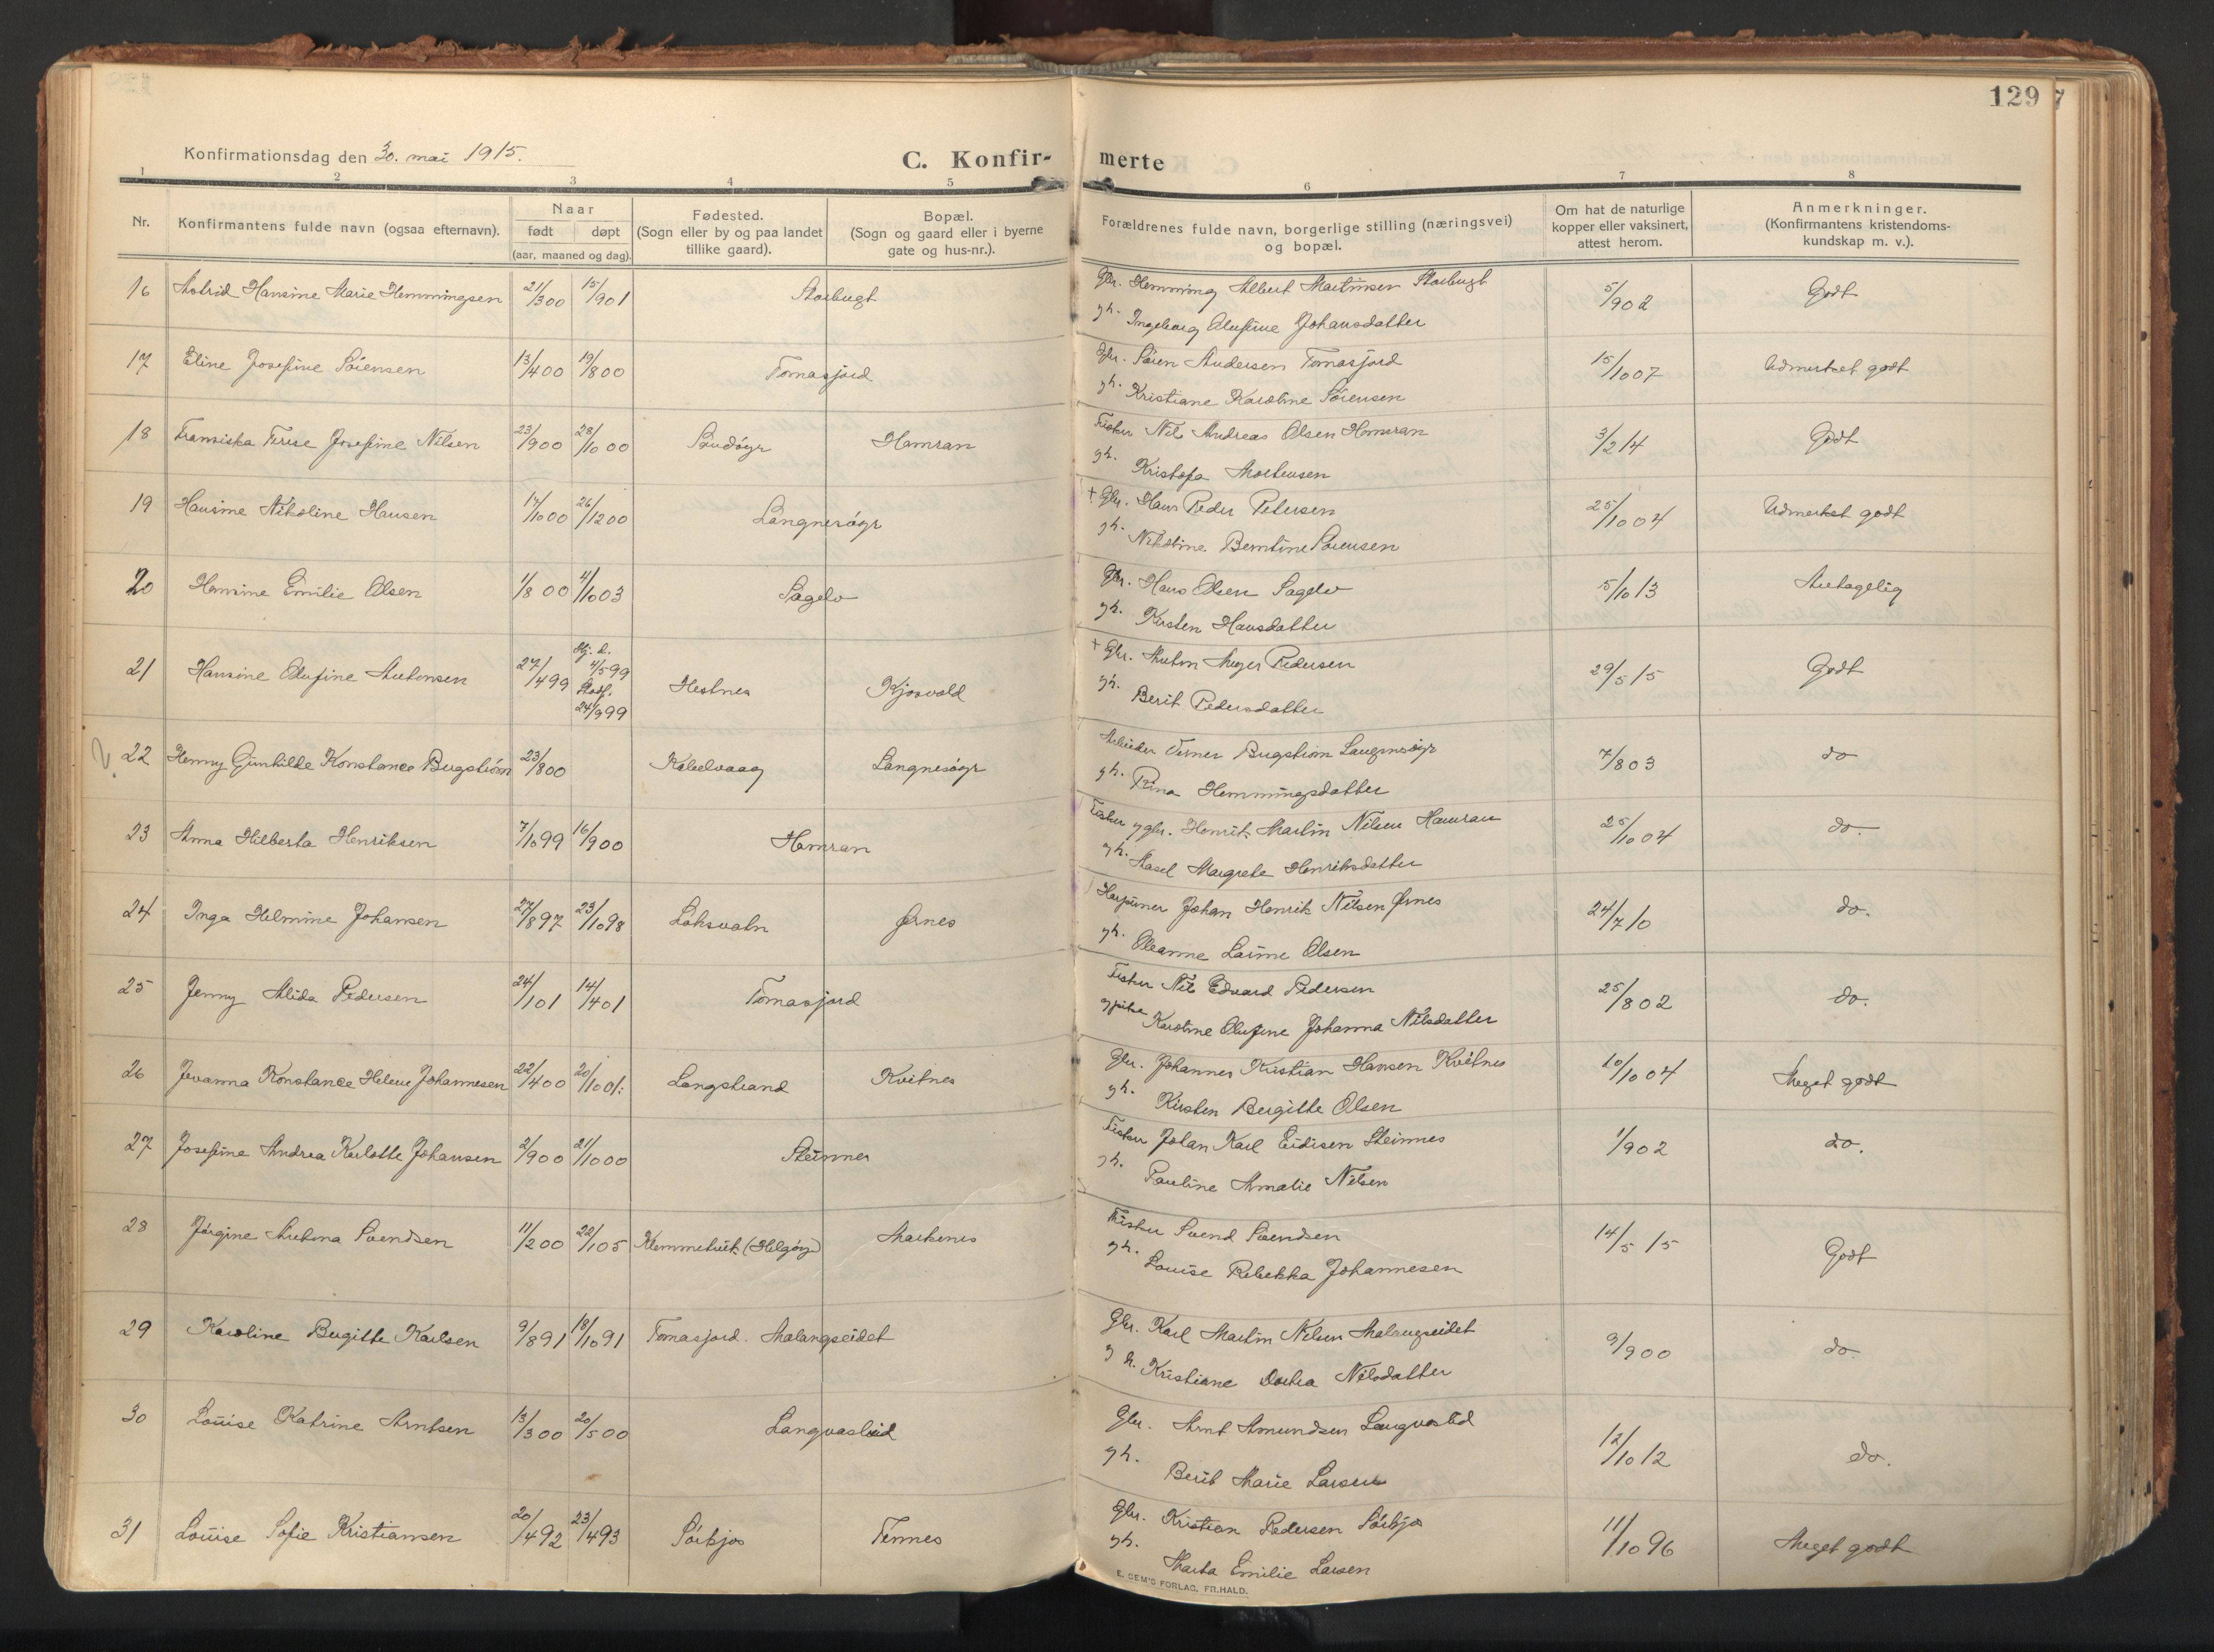 129 7
Konfirmationsdag den 30. mai 1915.
C. Konfir- merte
1 2 3 4 5 6 7 8
Nr. Konfirmantens fulde navn (ogsaa efternavn). Naar født døpt (aar, maaned og dag). Fødested. (Sogn eller by og paa landet tillike gaard). Bopæl. (Sogn og gaard eller i byerne gate og hus-nr.). Forældrenes fulde navn, borgerlige stilling (næringsvei) og bopæl. Om hat de naturlige kopper eller vaksinert, attest herom. Anmerkninger. (Konfirmantens kristendoms- kundskap m. v.).
16 Astrid Hansine Marie Hemmingsen 21/3 00 15/9 01 Storbugt Gbr. Hemming Albert Martinsen Storbugt 5/9 02 Godt
g h. Ingeborg Olufine Johansdatter
17 Eline Josefine Sörensen 13/4 00 19/8 00 Tomasjord Gbr. Sören Andersen Tomasjord 15/10 07 Udmerket godt
g h. Kristiane Karoline Sörensen
18 Fransiska Terese Josefine Nilsen 23/9 00 28/10 00 Sandöyr Hamran Fisker Nils Andreas Olsen Hamran 3/2 14 Godt
g h. Kristofa Mortensen
19 Hansine Nikoline Hansen 17/10 00 26/12 00 Langnesöyr + Gbr. Hans Peder Petersen 25/10 04 Udmerket godt
g h. Nikoline Berntine Sörensen
20 Hansine Emilie Olsen 1/8 00 4/10 03 Sagelv Gbr. Hans Olsen Sagelv 5/10 13 Antagelig
g h. Kirsten Hansdatter
21 Hansine Olufine Antonsen 27/4 99 Hj. d. 4/5 99 Stadf. 24/9 99 Hestnes Kjosvold + Gbr. Anton Meyer Pedersen 29/5 15 Godt
g h. Berit Pedersdatter
22 Henny Gunhilde Konstance Bergström 23/8 00 Kabelvaag Langnesöyr Arbeider Verner Bergström Langnesöyr 7/8 03 do
g h. Rina Hemmingsdatter
23 Anna Hilberta Henriksen 7/10 99 16/9 00 Hamran Fisker g gbr. Henrik Martin Nilsen Hamran 25/10 04 do.
g h. Aasel Margrete Henriksdatter
24 Inga Helmine Johansen 27/8 97 23/10 98 Laksvatn Ørnes Harpuner Johan Henrik Nilsen Ørnes 24/7 10 do.
g h. Oleanne Laime Olsen
25 Jenny Alida Pedersen 24/1 01 14/4 01 Tomasjord Fisker Nils Edvard Pedersen 25/8 02 do.
g pike Karoline Olufine Johanna Nilsdatter
26 Jovanna Konstance Helene Johannesen 22/4 00 20/10 01. Langstrand Kvitnes Gbr. Johannes Kristian Hansen Kvitnes 10/10 04 Meget godt
g h. Kirsten Bergitte Olsen
27 Josefine Andrea Karlotte Johansen 2/9 00 21/10 00 Steinnes Fisker Johan Karl Eidisen Steinnes 1/9 02 do.
g h. Pauline Amalie Nilsen
28 Jörgine Antona Svendsen 11/2 00 22/1 05 Klemmetvik (Helgöy) Markenes Fisker Svend Svendsen 14/5 15 Godt
g h. Louise Rebekka Johannesen
29 Karoline Bergitte Karlsen 9/8 91 18/10 91 Tomasjord. Malangseidet Gbr. Karl Martin Nilsen Malangseidet 9/9 00 do.
g h. Kristiane Dortea Nilsdatter
30 Louise Katrine Arntsen 13/3 00 20/5 00 Langvasleid Gbr. Arnt Amundsen 12/10 12 do.
g h. Berit Marie Larsen
31 Louise Sofie Kristiansen 20/4 92 23/4 93 Sörkjos Tennes Gbr. Kristian Pedersen Sörkjos 11/10 96 Meget godt
g h. Marta Emilie Larsen
E. SEM'S FORLAG, FR.HALD.